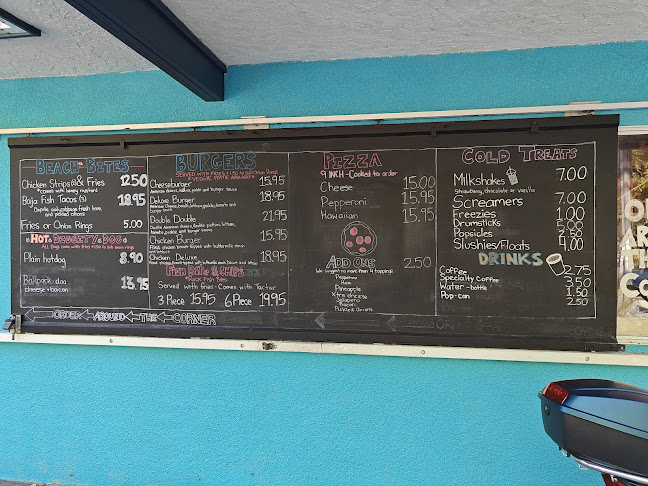 BEACH BITES
Chicken Strips & Fries 12.50
*comes with honey mustard
Baja Fish Tacos 18.95
and pickled onions
Fries or Onion Rings 5.00
HOT DIGGITY DOG
ALL Dogs come with fries
Plain hotdog 8.90
Ballpark dog 13.95
cheese & bacon
BURGERS
SERVED WITH FRIES
VEGGIE PATTIE AVAILABLE
Cheeseburger 15.95
Deluxe Burger 18.95
Double Double 21.95
Chicken Burger 15.95
Chicken Deluxe 18.95
FISH BITE & CHIPS
Served with fries - Comes with Tartar
3 Piece 15.95 6 Piece 19.95
PIZZA
9 INCH - Cooked to order
Cheese 15.00
Pepperoni 15.95
Hawaiian 15.95
ADD ONE 2.50
We suggest no more than 4 toppings!
Pepperoni
Ham
Pineapple
Xtra cheese
Jalapeno
Bacon
Pickled Onions
COLD TREATS
Milkshakes 7.00
Strawberry, chocolate or vanilla
Screamers 7.00
Freezies 1.00
Drumsticks 5.00
Popsicles
Slushies/Floats 4.00
DRINKS
Coffee 2.75
Specialty Coffee 3.50
Water - bottle 1.50
Pop - can 2.50
ORDER AROUND THE CORNER